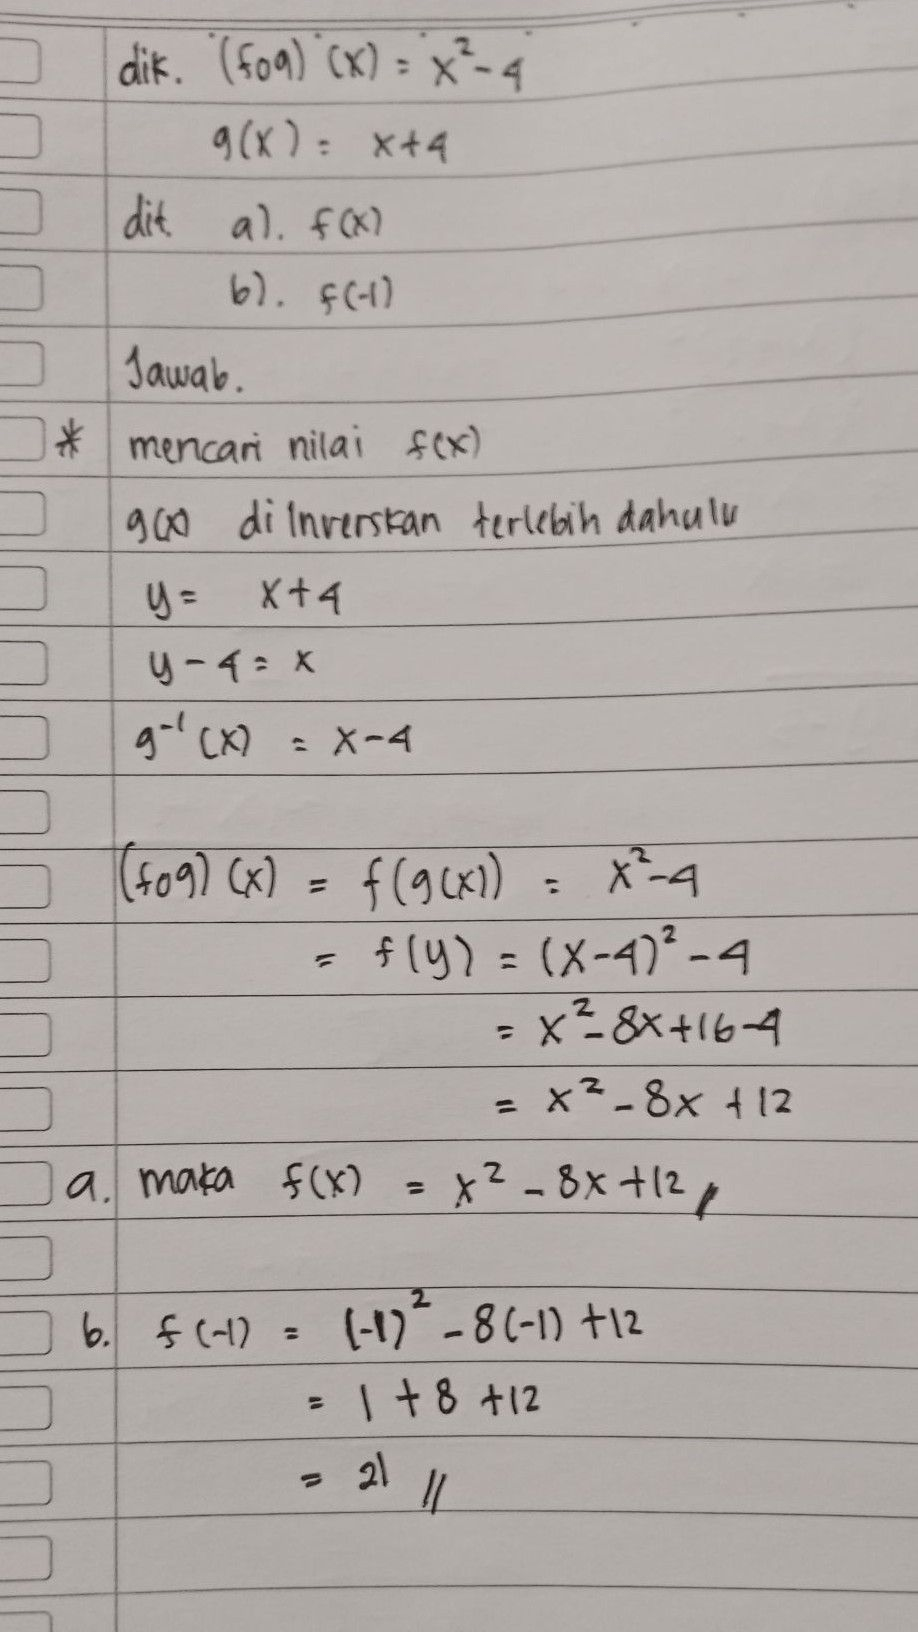 dik. (fog) (x) = x² - 4
g(x) = x+4
dit a). f(x)
b). f(-1)
Jawab.
* mencari nilai f(x)
g(x) di Inverskan terlebih dahulu
y = x+4
y - 4 = x
g⁻¹ (x) = x-4
(fog) (x) = f(g(x)) = x²-4
= f(y) = (x-4)² - 4
= x² - 8x+16-4
= x² - 8x + 12
a. maka f(x) = x² - 8x+12,
b. f(-1) = (-1)² - 8(-1) +12
= 1 + 8 +12
= 21 //